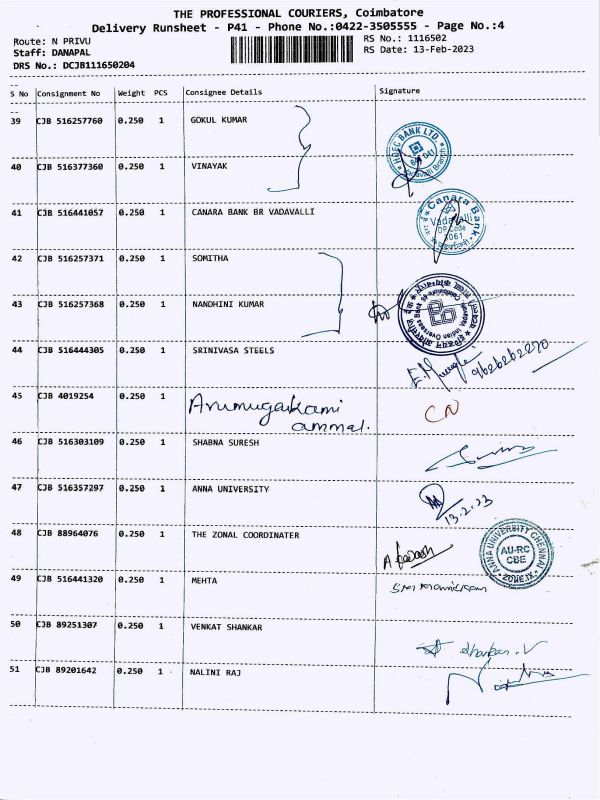 THE PROFESSIONAL COURIERS, Coimbatore
Delivery Runsheet - P41 - Phone No.:0422-3505555 - Page No.:4
Route: N PRIVU
RS No.: 1116502
Staff: DANAPAL
RS Date: 13-Feb-2023
DRS No.: DCJB111650204
S No Consignment No Weight PCS Consignee Details Signature
39 CJB 516257760 0.250 1 GOKUL KUMAR
HDFC BANK LTD.
40 CJB 516377360 0.250 1 VINAYAK
41 CJB 516441057 0.250 1 CANARA BANK BR VADAVALLI
Canara Bank
Vadavalli
DP Code
42 CJB 516257371 0.250 1 SOMITHA
43 CJB 516257368 0.250 1 NANDHINI KUMAR
Indian Overseas Bank
44 CJB 516444305 0.250 1 SRINIVASA STEELS
45 CJB 4019254 0.250 1 Arumugakkami
ammal.
CN
46 CJB 516303109 0.250 1 SHABNA SURESH
47 CJB 516357297 0.250 1 ANNA UNIVERSITY
13.2.23
48 CJB 88964076 0.250 1 THE ZONAL COORDINATER
ANNA UNIVERSITY CHENNAI
AU-RC
CBE
ZONE.IX
49 CJB 516441320 0.250 1 MEHTA
50 CJB 89251307 0.250 1 VENKAT SHANKAR
Shankar. V
51 CJB 89201642 0.250 1 NALINI RAJ